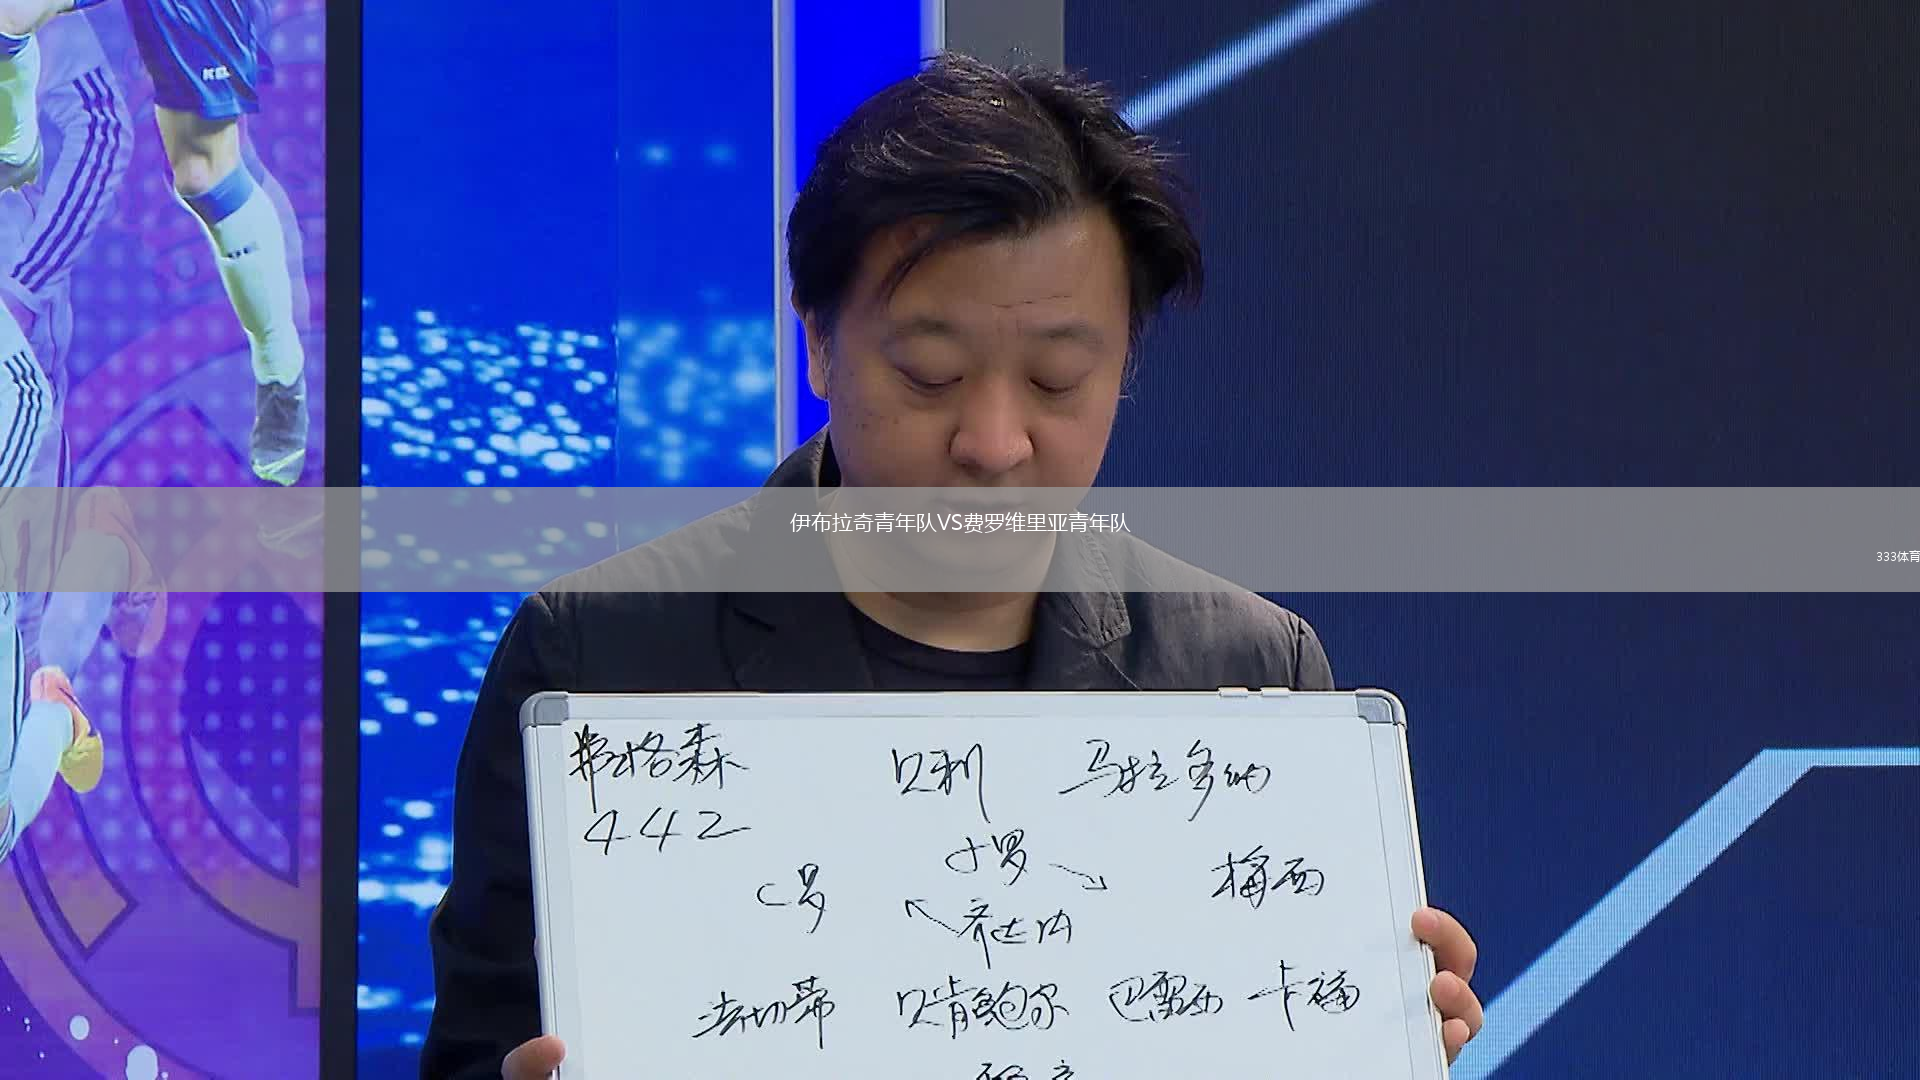 伊布拉奇青年队VS费罗维里亚青年队
333体育
弗格森 贝利 马拉多纳
442
小罗
C罗 梅西
齐达内
法切蒂 贝肯鲍尔 巴雷西 卡福